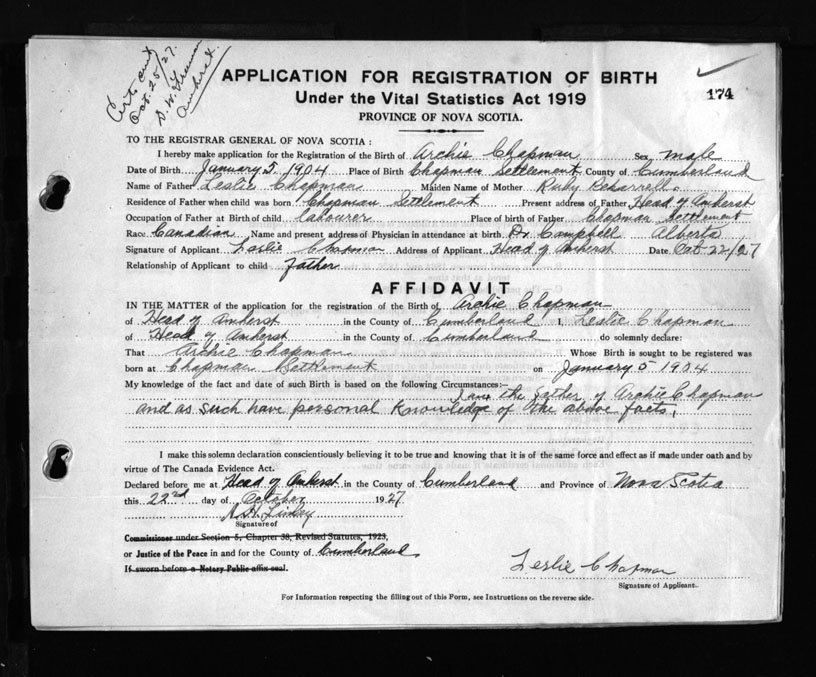 Cert. sent
Oct. 25/27.
Amherst.
APPLICATION FOR REGISTRATION OF BIRTH
174
Under the Vital Statistics Act 1919
PROVINCE OF NOVA SCOTIA.
TO THE REGISTRAR GENERAL OF NOVA SCOTIA :
I hereby make application for the Registration of the Birth of Archie Chapman Sex male
Date of Birth January 5, 1904 Place of Birth Chapman Settlement County of Cumberland
Name of Father Leslie Chapman Maiden Name of Mother Ruby
Residence of Father when child was born Chapman Settlement Present address of Father Head of Amherst
Occupation of Father at Birth of child Labourer Place of birth of Father Chapman Settlement
Race Canadian Name and present address of Physician in attendance at birth Dr Campbell Alberta
Signature of Applicant Leslie Chapman Address of Applicant Head of Amherst Date Oct 22/27
Relationship of Applicant to child Father
AFFIDAVIT
IN THE MATTER of the application for the registration of the Birth of Archie Chapman
of Head of Amherst in the County of Cumberland I, Leslie Chapman
of Head of Amherst in the County of Cumberland do solemnly declare:
That Archie Chapman Whose Birth is sought to be registered was
born at Chapman Settlement on January 5 1904
My knowledge of the fact and date of such Birth is based on the following Circumstances:—
I am the father of Archie Chapman
and as such have personal knowledge of the above facts,
I make this solemn declaration conscientiously believing it to be true and knowing that it is of the same force and effect as if made under oath and by
virtue of The Canada Evidence Act.
Declared before me at Head of Amherst in the County of Cumberland and Province of Nova Scotia
this 22nd day of October 1927
Signature of
Commissioner under Section 5, Chapter 38, Revised Statutes, 1923,
or Justice of the Peace in and for the County of Cumberland
If sworn before a Notary Public affix seal.
Leslie Chapman
Signature of Applicant.
For Information respecting the filling out of this Form, see Instructions on the reverse side.